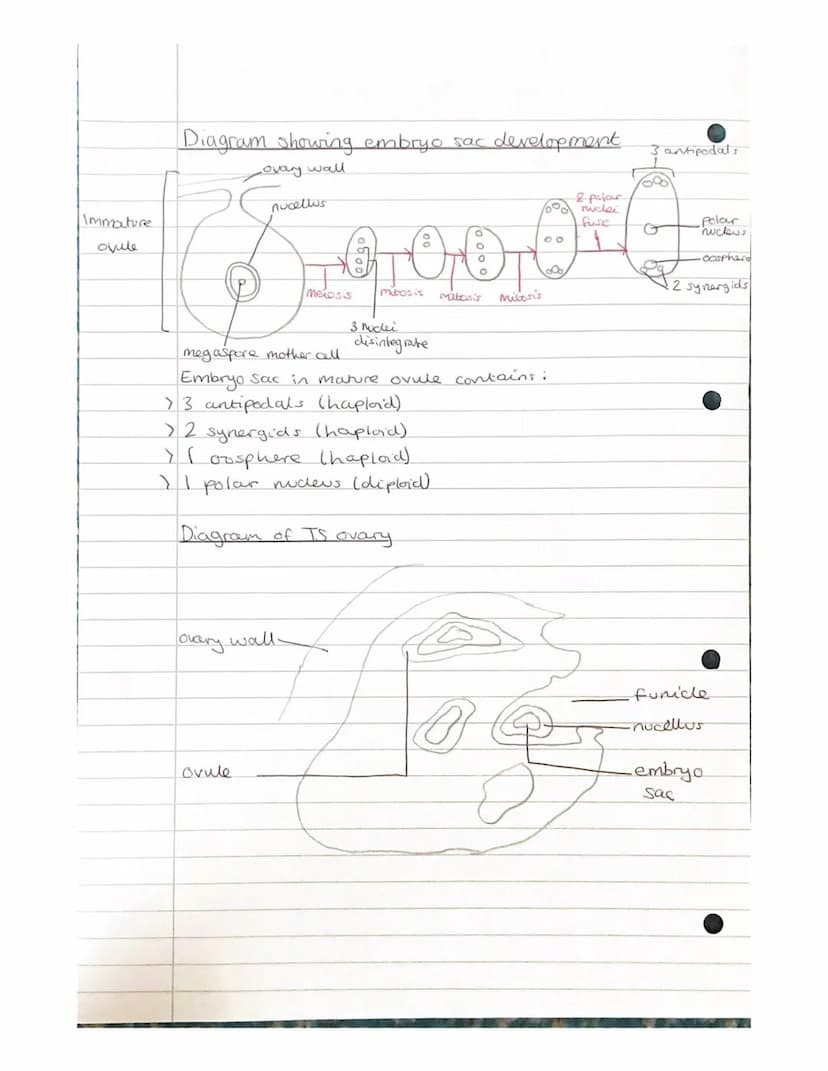 Diagram showing embryo sac development
3 antipodals
ovary wall
nucellus
2 polar
nuclei
fuse
Immature
ovule
polar
nucleus
oosphere
2 synergids
meiosis
mitosis
mitosis
mitosis
3 nuclei
disintegrate
megaspore mother cell
Embryo sac in mature ovule contains:
> 3 antipodals (haploid)
> 2 synergids (haploid)
> 1 oosphere (haploid)
> 1 polar nucleus (diploid)
Diagram of TS ovary
ovary wall
funicle
nucellus
ovule
embryo
sac